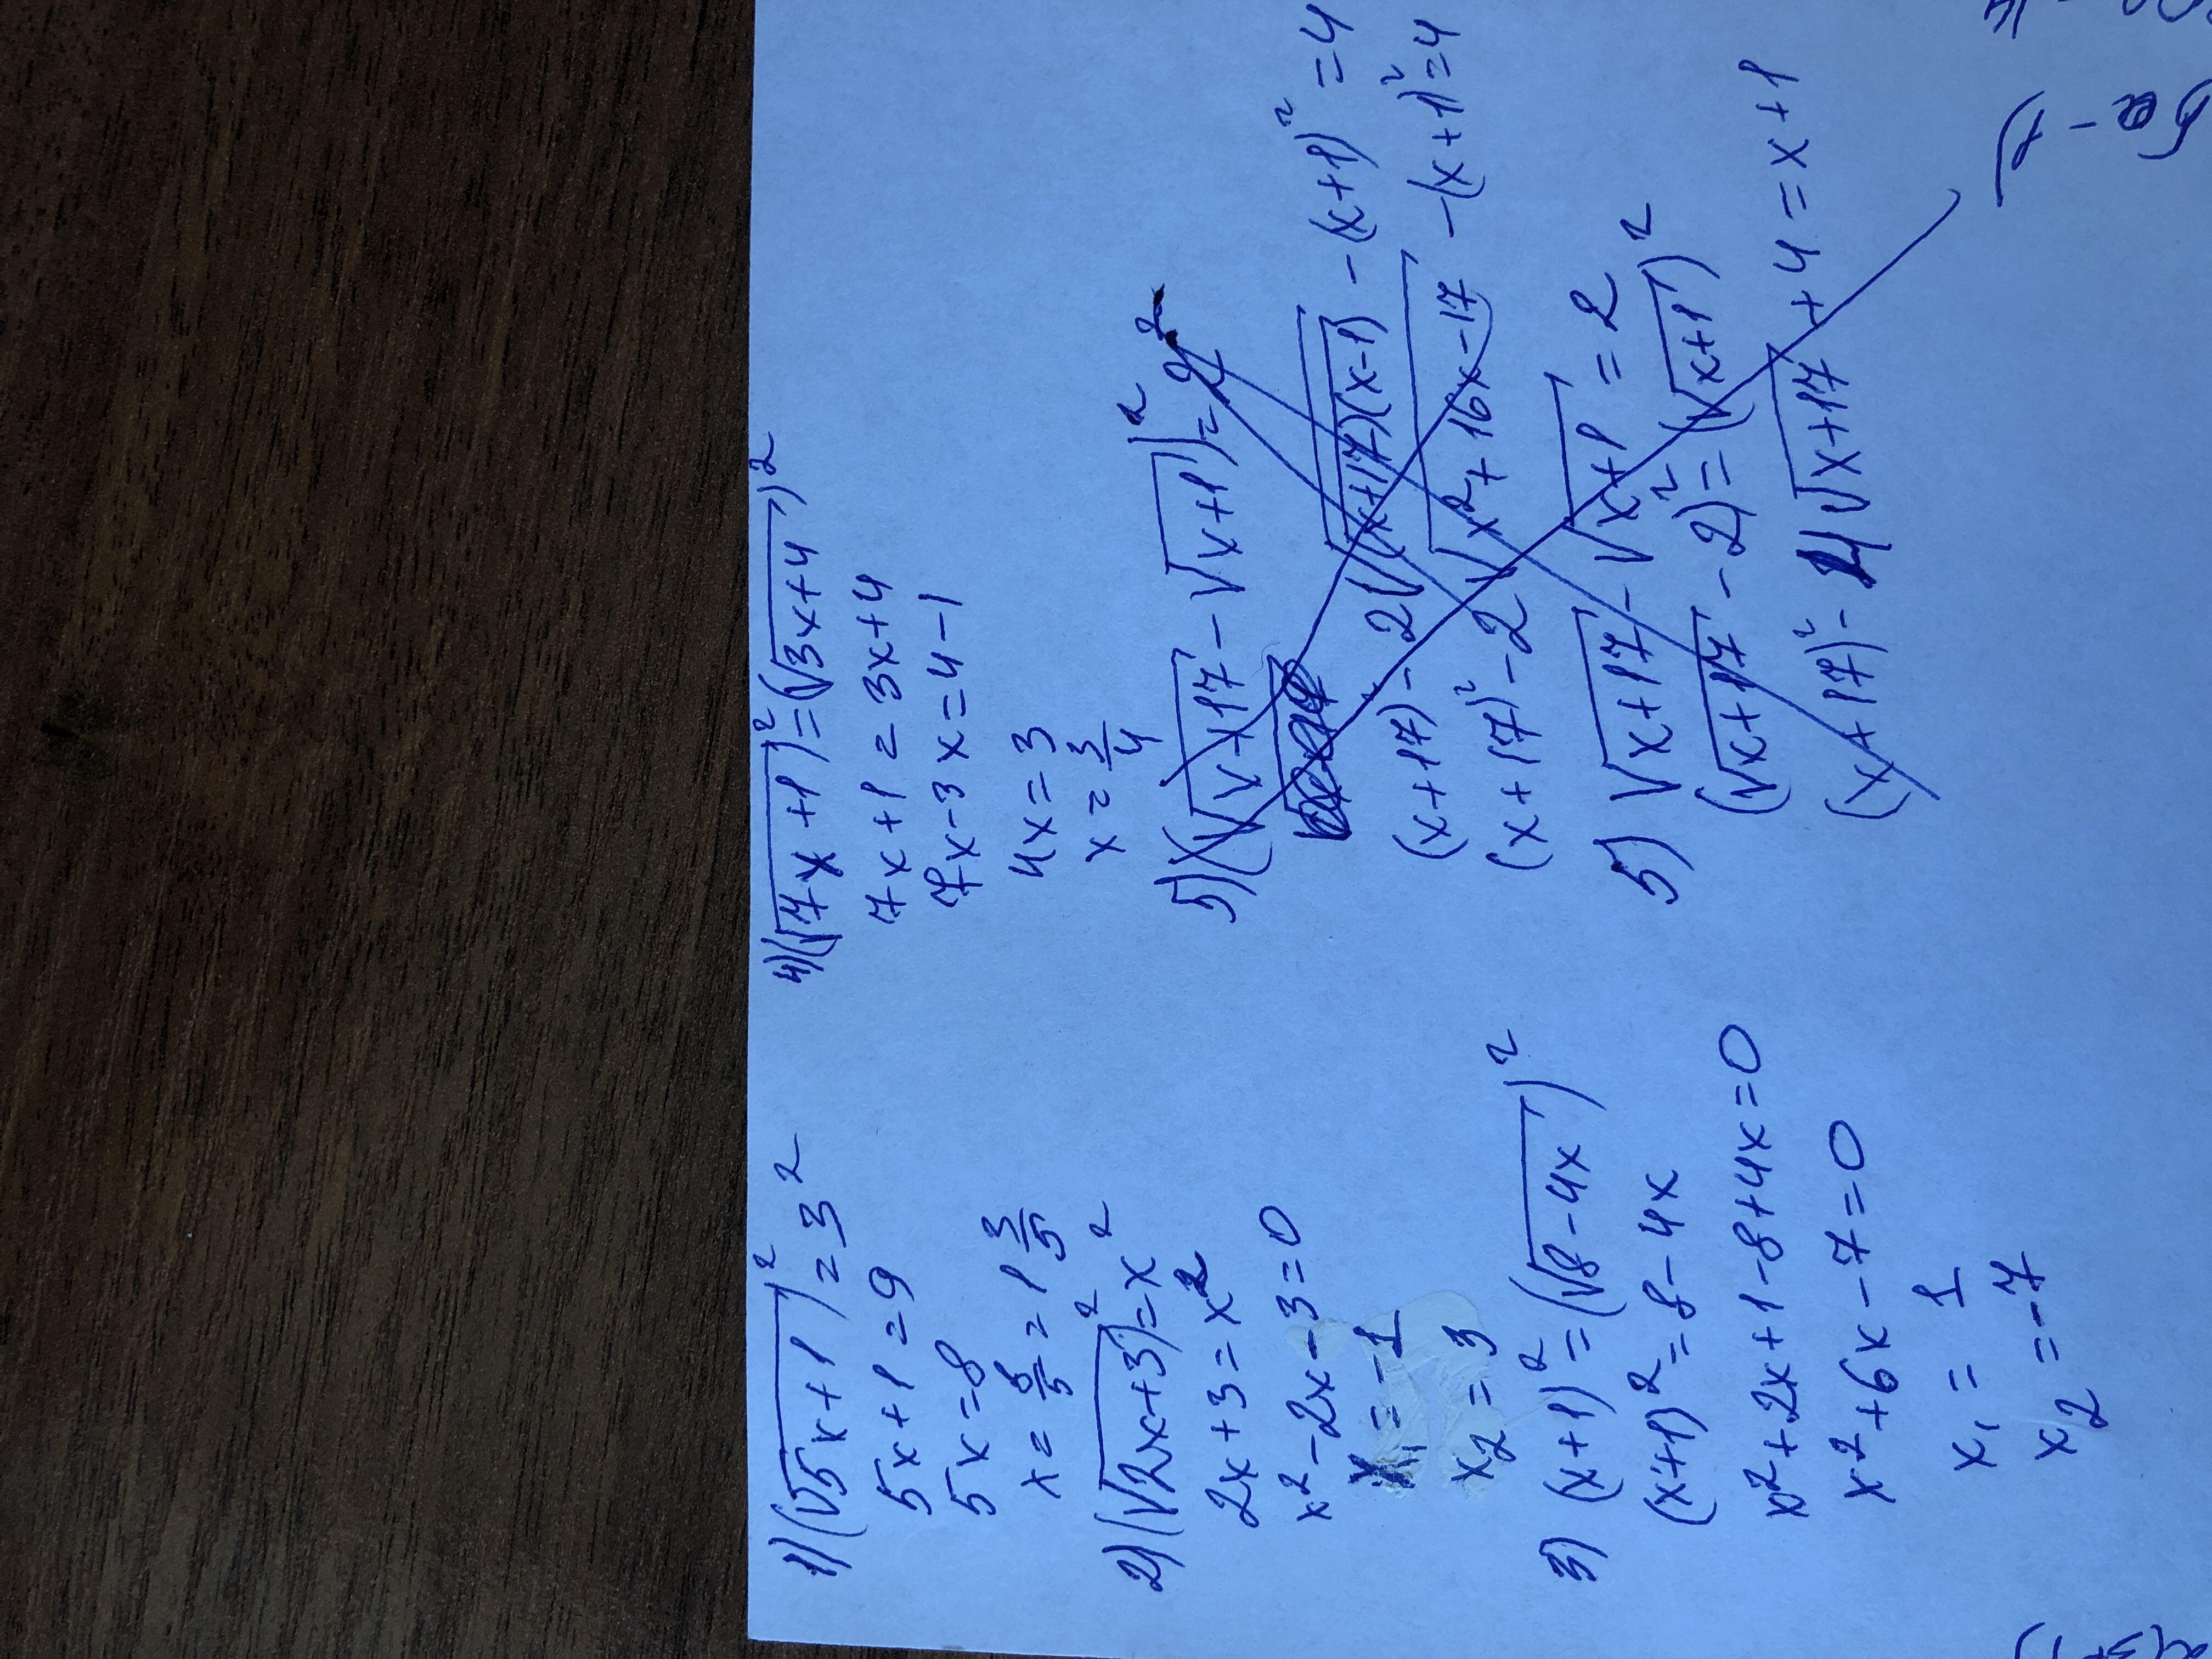 1) (√5x+1)² = 3²
5x+1=9
5x=8
x = 8/5 = 1 3/5
2) (√2x+3)² = x²
2x+3 = x²
x² - 2x - 3 = 0
x₁ = -1
x₂ = 3
3) (x+1)² = (√8-4x)²
(x+1)² = 8-4x
x² + 2x + 1 - 8 + 4x = 0
x² + 6x - 7 = 0
x₁ = 1
x₂ = -7
4) (√7x+1)² = (√3x+4)²
7x+1 = 3x+4
7x-3x = 4-1
4x = 3
x = 3/4
5) (√x+17 - √x+1)² = 2²
(x+17) - 2√(x+17)(x-1) - (x+1)² = 4
(x+17)² - 2√x²+16x-17 - (x+1)² = 4
5) √x+17 - √x+1 = 2
(√x+17 - 2)² = (√x+1)²
(x+17)² - 4√x+17 + 4 = x+1